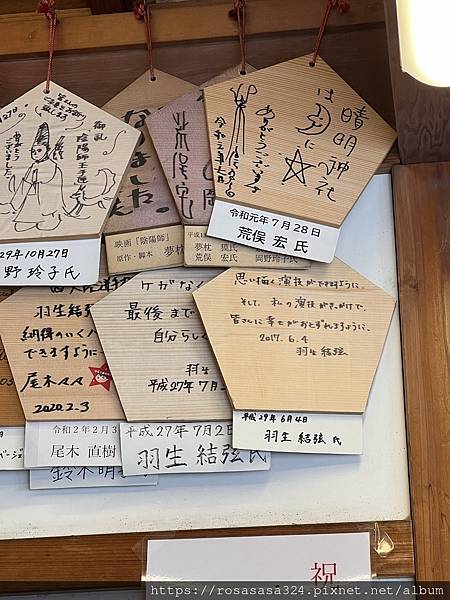 御礼
陰陽師
ありがとうございました
29年10月27日
野 玲子氏
なりました。
晴明神社
は
に
ありがとうございます
令和元年7月28日
荒俣 宏 氏
映画「陰陽師」
原作・脚本
夢枕
平成1
夢枕 獏氏
荒俣 宏氏
岡野玲子氏
羽生結弦
納得のいく
できますように
尾木々々
2020.2.3
令和2年2月3
尾木 直樹
鈴木明
ケガなく
最後まで
自分らしく
羽生
平成27年7月2
平成27年7月2日
羽生 結弦氏
思い描く演技ができますように。
そして、私の演技がきっかけで、
皆さんに幸せがおとずれますように。
2017. 6. 4
羽生結弦
平成29年6月4日
羽生 結弦 氏
祝
https://rosasasa324.pixnet.net/album